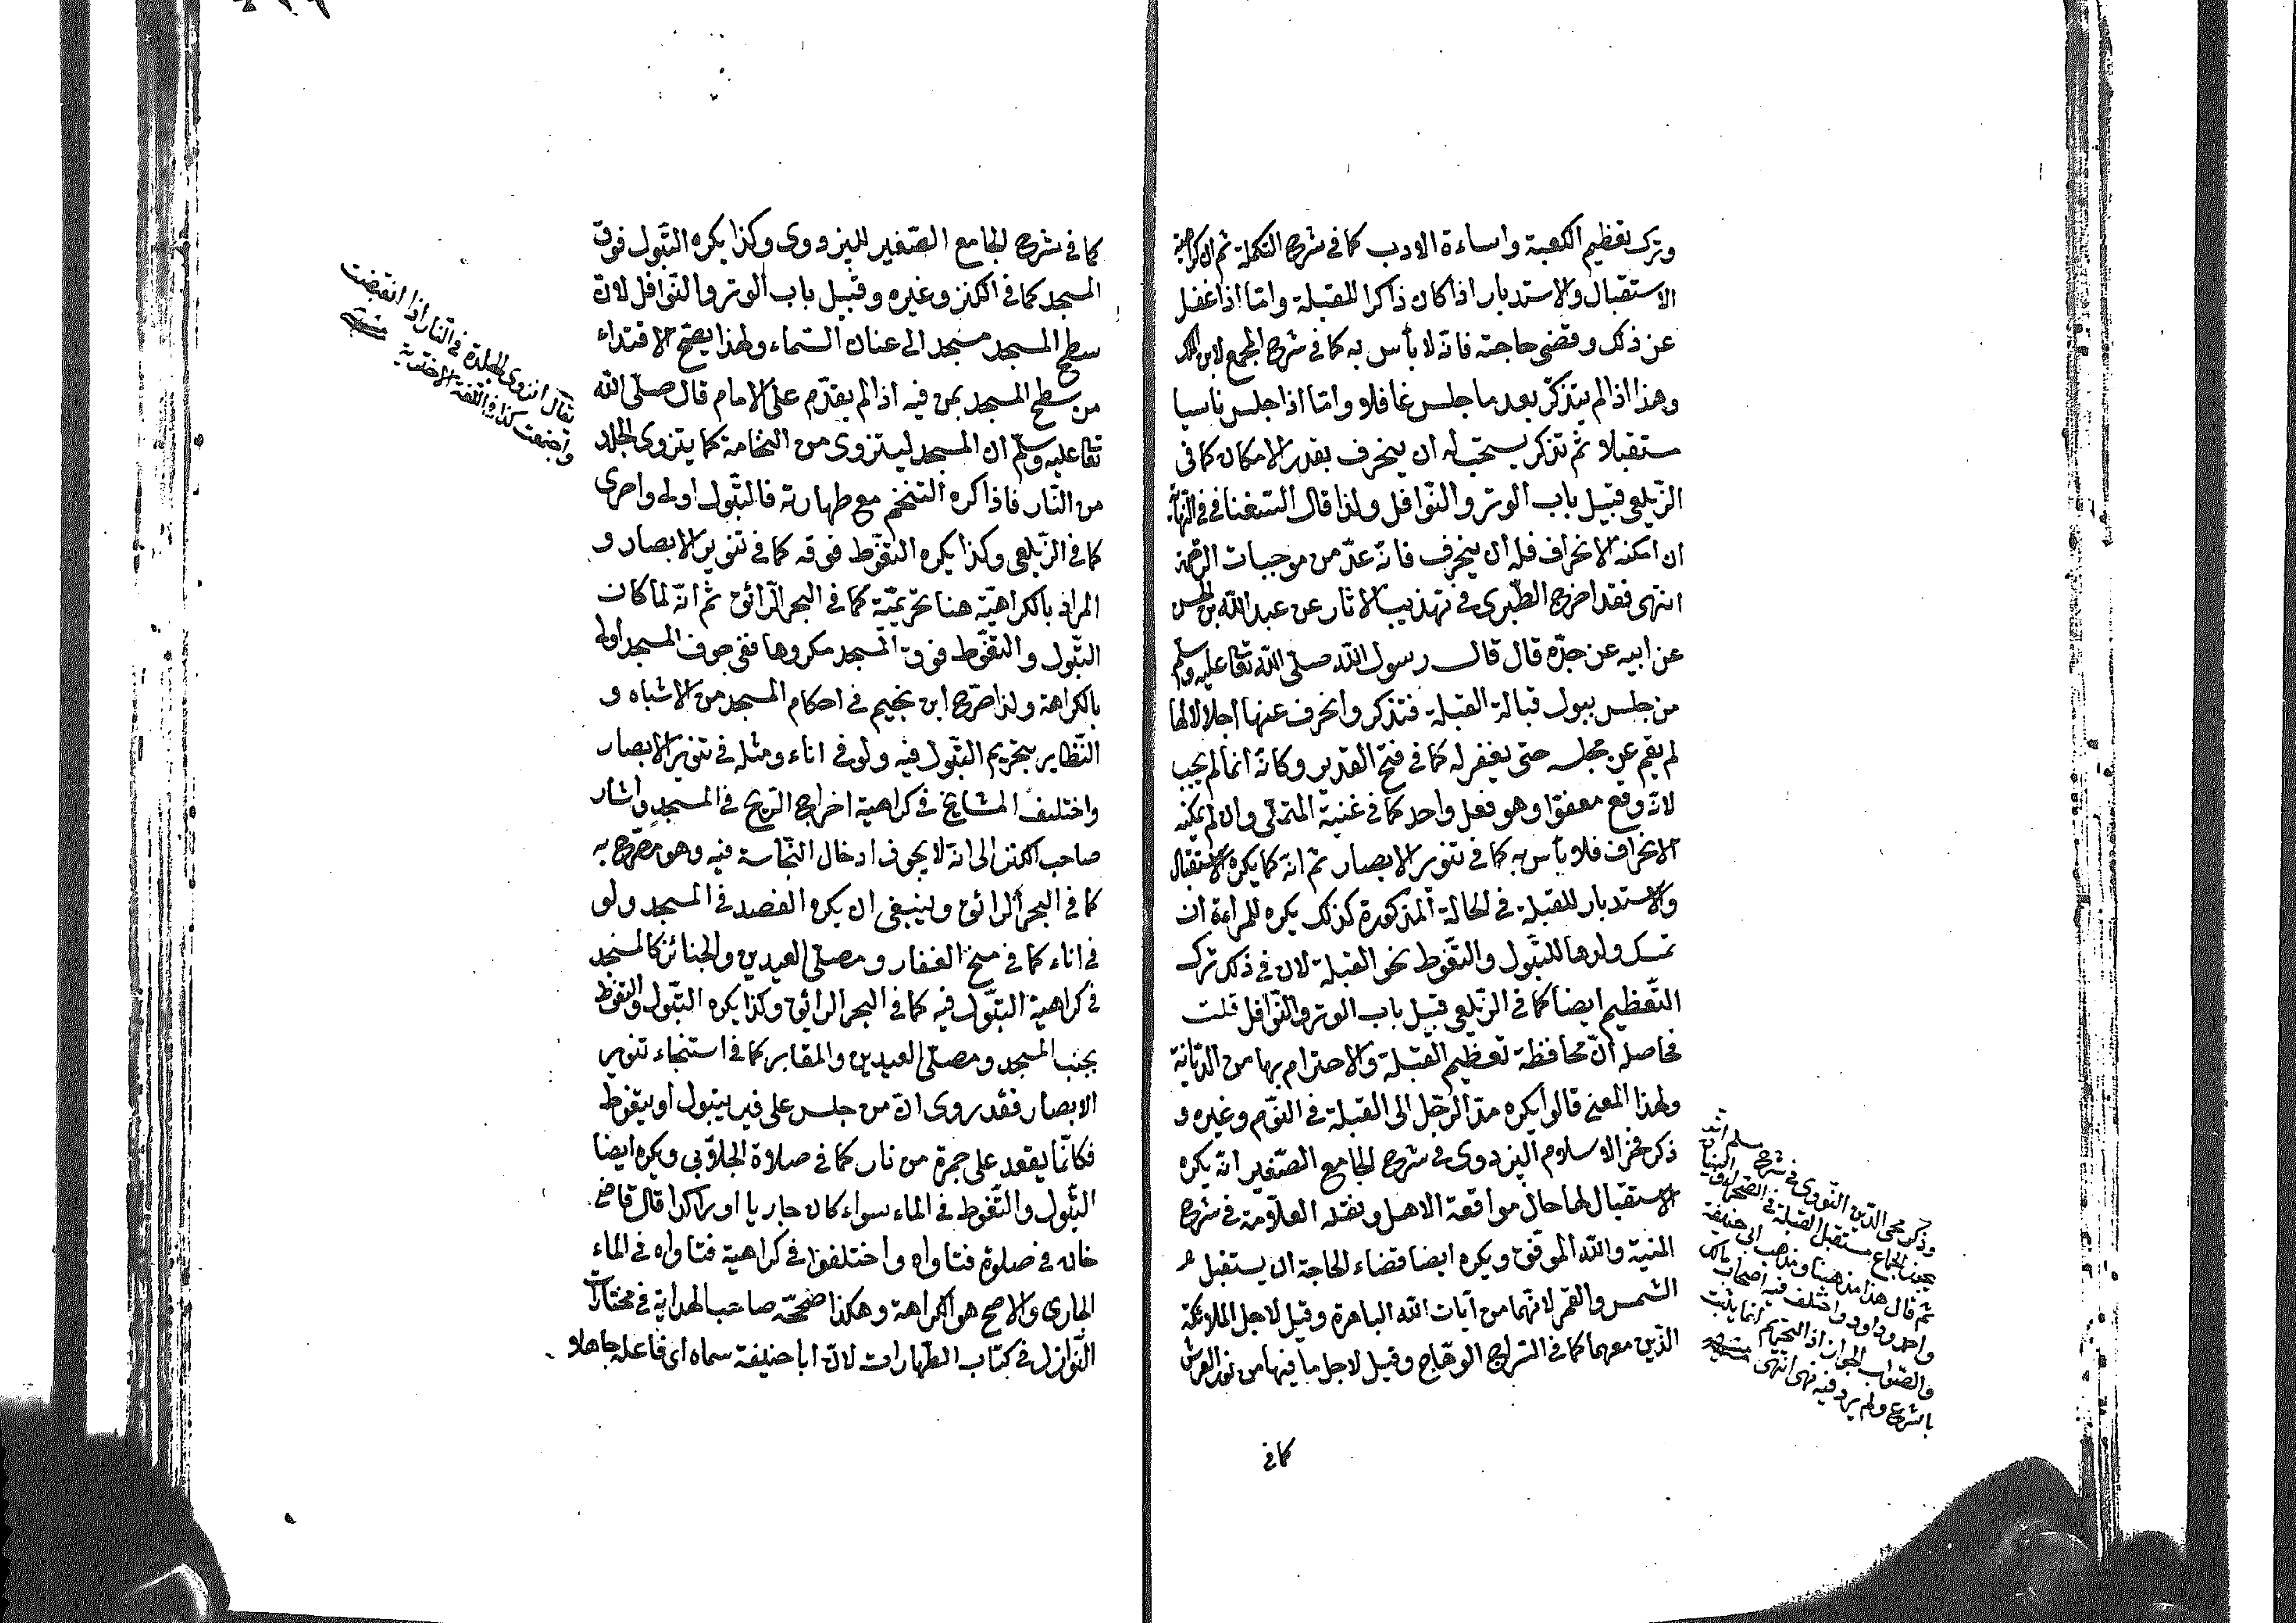 وترك تعظيم الكعبة واساءة الادب كما فى شرح التكملة ثم ان كراهة
الاستقبال والاستدبار اذا كان ذاكرا للقبلة وامّا اذا غفل
عن ذلك وقضى حاجته فانه لا بأس به كما فى شرح المجمع لابن الملك
وهذا اذا لم يتذكّر بعد ما جلس غافلا وامّا اذا جلس ناسيا
مستقبلا ثم تذكر يستحب له ان ينحرف بقدر الامكان كما فى
الزّيلعى قبيل باب الوتر والنّوافل ولذا قال السّغناقى فى النّهاية
ان امكنه الانحراف فله ان ينحرف فانّه عدّ من موجبات الرّحمة
انتهى فقد اخرج الطّبرى فى تهذيب الاثار عن عبد الله بن الحسن
عن ابيه عن جدّه قال قال رسول الله صلّى الله تعا عليه وسلّم
من جلس يبول قبالة القبلة فتذكر وانحرف عنها اجلالا لها
لم يقم عن مجلسه حتى يغفر له كما فى فتح القدير وكانّه انما لم يجب
لانّه وقع معفوّا وهو فعل واحد كما فى غنية المتملّى وان لم يمكنه
الانحراف فلا بأس به كما فى تنوير الابصار ثمّ انّه كما يكره الاستقبال
والاستدبار للقبلة فى الحالة المذكورة كذلك يكره للمراءة ان
تمسك ولدها للتبوّل والتّغوّط نحو القبلة لان فى ذلك ترك
التّعظيم ايضا كما فى الزّيلعى قبيل باب الوتر والنّوافل قلت
فحاصله انّ محافظة تعظيم القبلة والاحترام بها من الدّيانة
ولهذا المعنى قالوا يكره مدّ الرّجل الى القبلة فى النّوم وغيره و
ذكر فخر الاسلام البزدوى فى شرح الجامع الصّغير انّه يكره
الاستقبال لها حال مواقعة الاهل ونقله العلاّمة فى شرح
المنية والله الموفق ويكره ايضا قضاء الحاجة ان يستقبل
الشمس والقمر لانّهما من آيات الله الباهرة وقيل لاجل الملائكة
الذّين معهما كما فى السّراج الوهّاج وقيل لاجل ما فيها من نور العرش
كما فى
وذكر محى الدّين النّووى فى شرح مسلم انّه
يجوز الجماع مستقبل القبلة فى الصّحراء والبنيان
ثم قال هذا مذهبنا ومذهب ابى حنيفة
واحمد وداود واختلف فيه اصحاب مالك
والصّواب الجواز اذ التحريم انما يثبت
بالشرع ولم يرد فيه نهى انتهى
كما فى شرح الجامع الصّغير للبزدوى وكذا يكره التّبول فوق
المسجد كما فى الكنز وغيره وقبيل باب الوتر والنّوافل لانّ
سطح المسجد مسجد الى عنان السّماء ولهذا يصحّ الاقتداء
من سطح المسجد بمن فيه اذا لم يتقدّم على الامام قال صلّى الله
تعا عليه وسلّم ان المسجد لينزوى من النخامة كما ينزوى الجلد
من النّار فاذا كره التنخّم مع طهارته فالتّبول اولى واحرى
كما فى الزّيلعى وكذا يكره التغوّط فوقه كما فى تنوير الابصار و
المراد بالكراهيّة هنا تحريميّة كما فى البحر الرّائق ثم انّه لما كان
التّبول والتغوّط فوق المسجد مكروها ففى جوف المسجد اولى
بالكراهة ولذا صرّح ابن نجيم فى احكام المسجد من الاشباه و
النّظاير بتحريم التّبول فيه ولو فى اناء ومثله فى تنوير الابصار
واختلف المشايخ فى كراهية اخراج الرّيح فى المسجد واشار
صاحب الكنز الى انّه لا يجوز ادخال النّجاسة فيه وهو مصرّح به
كما فى البحر الرائق وينبغى ان يكره الفصد فى المسجد ولو
فى اناء كما فى منح الغفار ومصلّى العيدين والجنائز كالمسجد
فى كراهية التبوّل فيه كما فى البحر الرائق وكذا يكره التبّول والتغوّط
بجنب المسجد ومصلّى العيدين والمقابر كما فى استنجاء تنوير
الابصار فقد روى انّ من جلس على قبر يتبول او يتغوّط
فكانّما يقعد على جمرة من نار كما فى صلاة الجلاّبى ويكره ايضا
التّبول والتّغوّط فى الماء سواء كان جاريا او راكدا قال قاضى
خان فى صلوة فتاواه واختلفوا فى كراهية فى الماء
الجارى والاصح هو الكراهة وهكذا صحّحه صاحب الهداية فى مختارات
النّوازل فى كتاب الطّهارات لانّ ابا حنيفة سماه اى فاعله جاهلا
يقال انزوى الجلدة فى النّار اذا انقبضت
واجتمعت كذا فى اللغة الاخترية